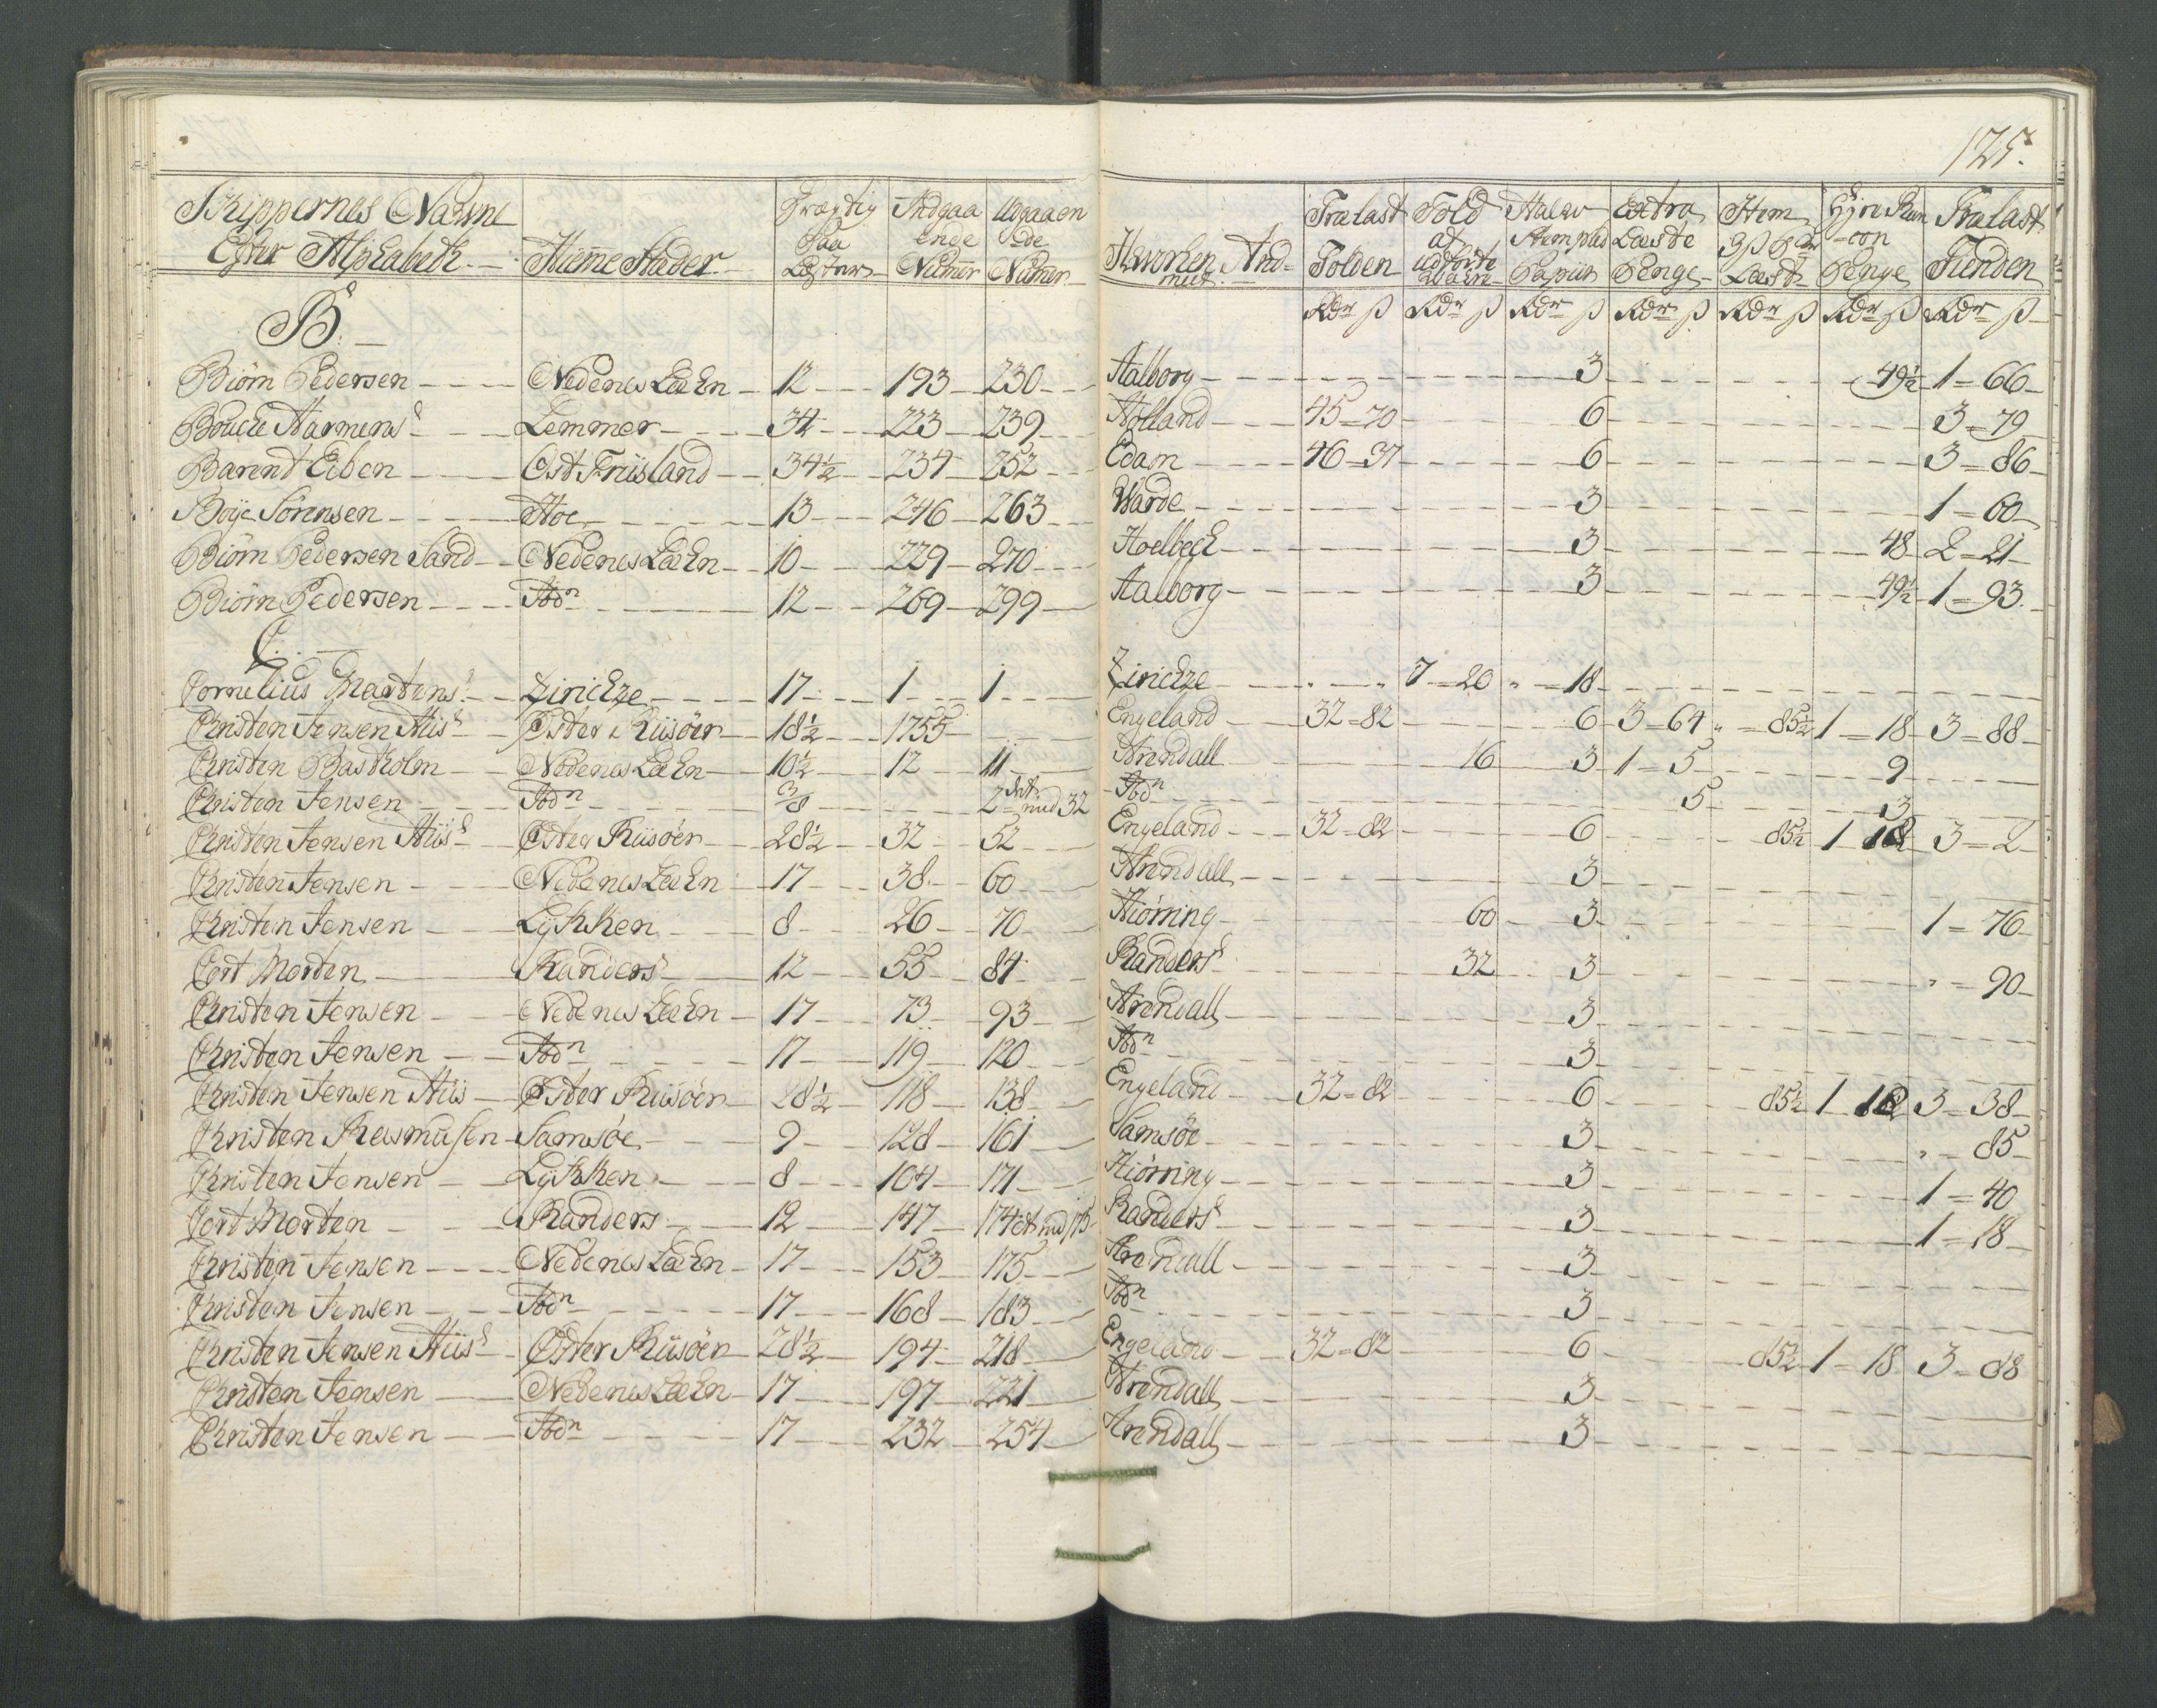 125.
Skippernes Nawne Efter Alphabeth. Hiemme Stæder Drægtig Paa Læster Indgaaende Numer Udgaaende Numer Hworhen And- Trælast Tolden Told af udførte Stempled Papiir Extra Læste Penge Item Læst Fyre Penge Trælast Tienden
Rdr β Rdr β Rdr β Rdr β Rdr β Rdr β Rdr β
B.
Biörn Pedersen Nedenes Læhn 12 193 230 Aalborg 3 49½ 1 = 66
Boucke Harmens Lemmer 34 223 239 Holland 45 = 70 6 3 = 79
Barend Eiben Ost Friisland 34½ 234 252 Edam 46 = 37 6 3 = 86
Boÿe Sörensen Hoe 13 246 263 Warde 3 1 = 60
Biörn Pedersen Sand Nedenes Læhn 10 229 270 Hoelbech 3 48 2 = 21
Biörn Pedersen Ibdn 12 269 299 Aalborg 3 49½ 1 = 93
C.
Cornelius Martens Zirichze 17 1 1 Zirichze 7 = 20 " = 18
Christen Jensen Hiis Öster Riisöer 18½ 1755 Engeland 32 = 82 6 3 = 64 " = 85½ 1 = 18 3 = 88
Christen Bastholm Nedenes Læhn 10½ 12 11 Arendall 16 3 1 = 5 9
Christen Jensen Ibdn 3/8 2 det mid 32 Ibdn 5 3
Christen Jensen Hiis Öster Riisöer 28½ 32 52 Engeland 32 = 82 6 85½ 1 18 3 = 2
Christen Jensen Nedenes Læhn 17 38 60 Arendall 3
Christen Jensen Lÿkken 8 26 70 Hiörring 60 3 1 = 76
Cort Morten Randers 12 55 84 Randers 32 3 " = 90
Christen Jensen Nedenes Læhn 17 73 93 Arendall 3
Christen Jensen Ibdn 17 119 120 Ibdn 3
Christen Jensen Hiis Öster Riisöer 28½ 118 138 Engeland 32 = 82 6 85½ 1 18 3 = 38
Christen Rasmusen Samsöe 9 128 161 Samsöe 3 " = 85
Christen Jensen Lÿkken 8 104 171 Hiörring 3 1 = 40
Cort Morten Randers 12 147 174 Randers 3 1 = 18
Christen Jensen Nedenes Læhn 17 153 175 Arendall 3
Christen Jensen Ibdn 17 168 183 Ibdn 3
Christen Jensen Hiis Öster Riisöer 28½ 194 218 Engeland 32 = 82 6 85½ 1 = 18 3 = 88
Christen Jensen Nedenes Læhn 17 197 221 Arendall 3
Christen Jensen Ibdn 17 232 254 Arendall 3